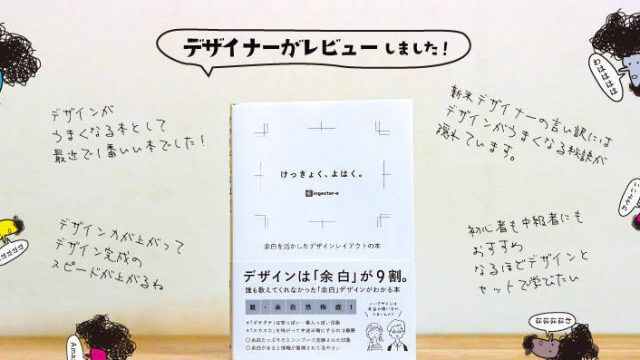 デザイナーがレビューしました!
デザインが
うまくなる本として
最近で1番いい本でした!
新米デザイナーの言い訳には
デザインがうまくなる秘訣が
隠れています。
わはははは
デザイン力が上がって
デザイン完成の
スピードが上がるね
初心者も中級者にも
おすすめ
なるほどデザインと
セットで学びたい
けっきょく、よはく。
ingectar-e
余白を活かしたデザインレイアウトの本
デザインは「余白」が9割。
誰も教えてくれなかった「余白」デザインがわかる本
脱・余白恐怖症!